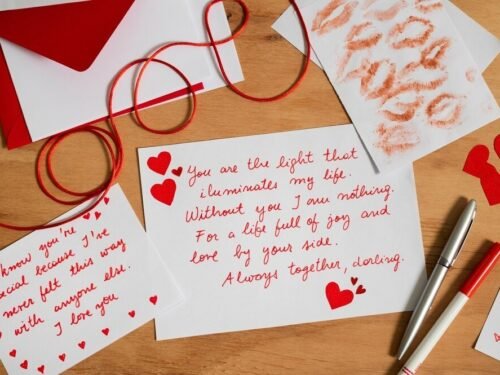 You are the light that
iluminates my life.
Without you I am nothing.
For a life full of joy and
love by your side.
Always together, darling.
know you're
ecial because I've
never felt this way
with anyone else.
I love you